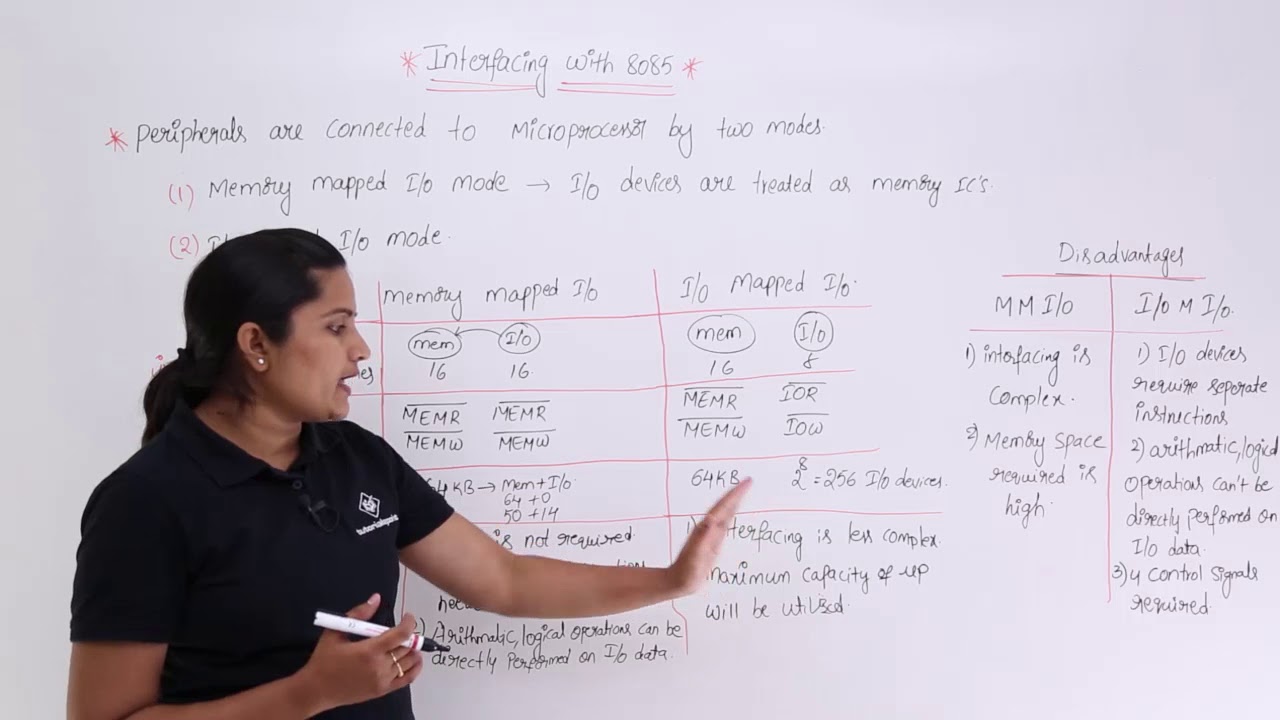 * Interfacing with 8085 *
* Peripherals are connected to Microprocessor by two modes.
(1) Memory mapped I/O mode → I/O devices are treated as memory IC's.
(2) I/O mode.
Memory mapped I/O
I/O Mapped I/O.
mem I/O
16 16.
mem I/O
16 8
MEMR MEMR
MEMW MEMW
MEMR IOR
MEMW IOW
64KB → Mem+I/O.
64 +0
50 +14
64KB 2^8 = 256 I/O devices.
is not required.
Arithmatic, logical operations can be
directly performed on I/O data.
1) Interfacing is less complex.
maximum capacity of up
will be utilised.
tutorialspoint
Disadvantages
MM I/O
1) interfacing is
Complex.
2) Memory Space
required is
high.
I/O M I/O.
1) I/O devices
require seperate
instructions
2) arithmatic, logical
operations can't be
directly performed on
I/O data.
3) 4 Control signals
required.